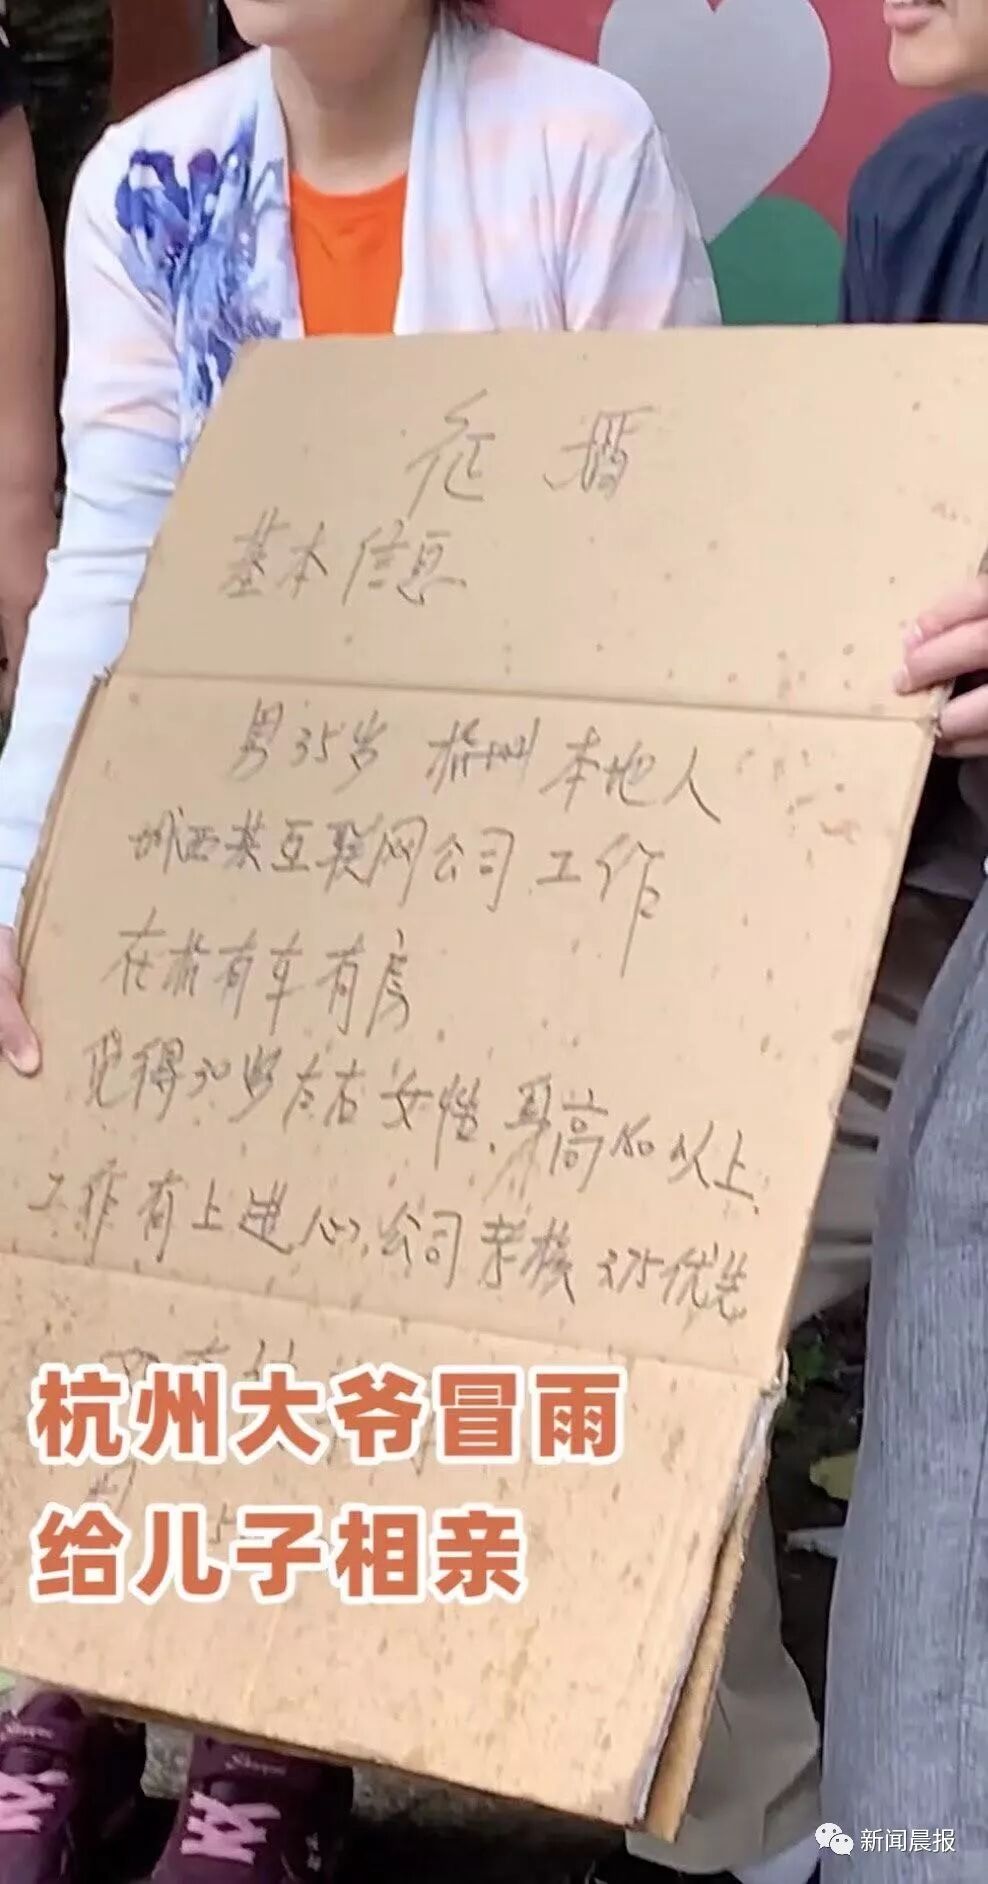 征 婚
基本信息
男35岁 杭州本地人
城西某互联网公司工作
在杭有车有房
觅得30岁左右女性,身高160以上,
工作有上进心,公司考核375优先
杭州大爷冒雨
给儿子相亲
新闻晨报